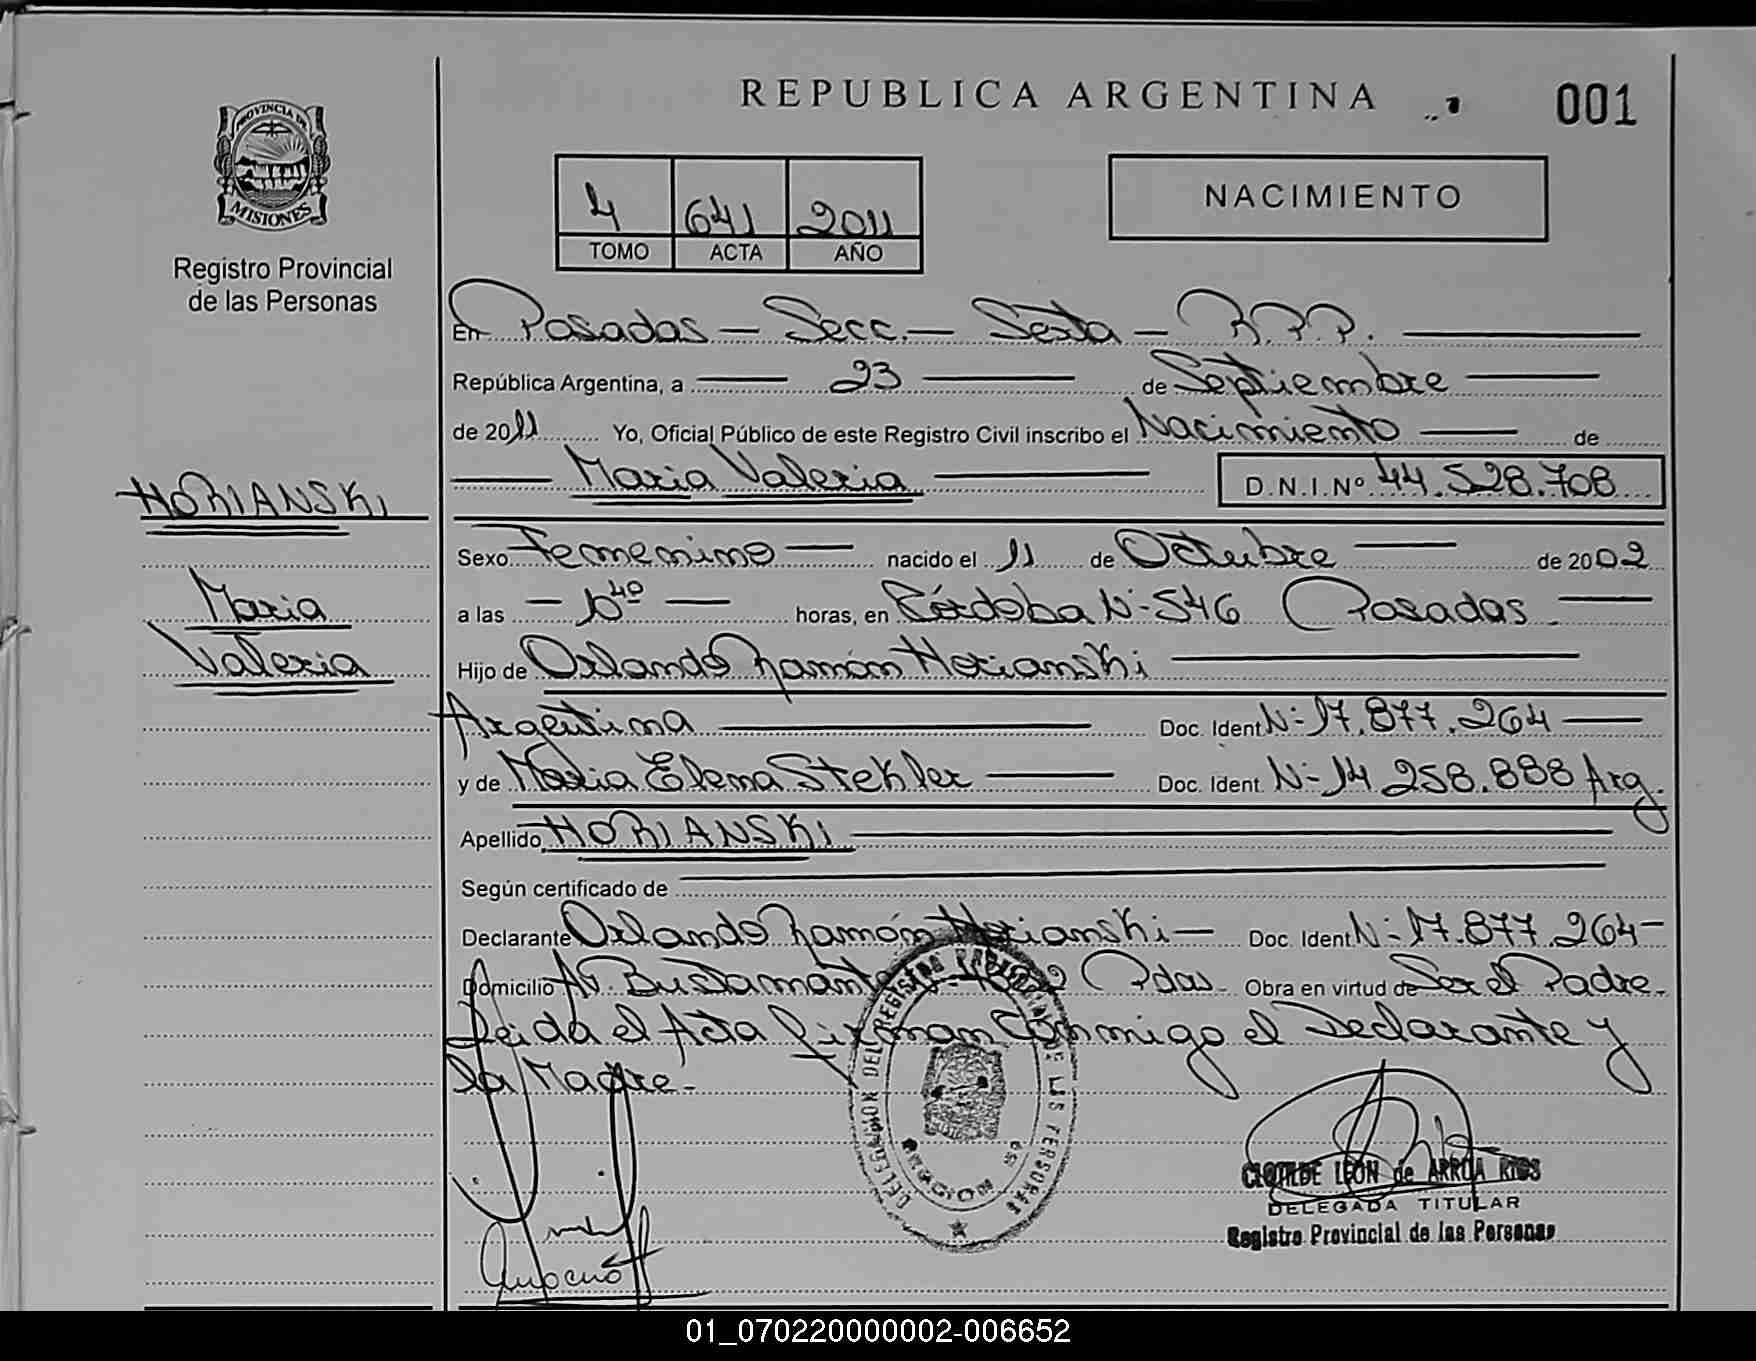 REPUBLICA ARGENTINA
001
PROVINCIA DE
MISIONES
Registro Provincial
de las Personas
4 641 2011
TOMO ACTA AÑO
NACIMIENTO
En Posadas - Secc. - Sexta - R.P.P.
República Argentina, a 23 de Septiembre
de 2011 Yo, Oficial Público de este Registro Civil inscribo el Nacimiento de
Maria Valeria D.N.I.Nº 44.528.708
HORIANSKI
Maria
Valeria
Sexo Femenino nacido el 11 de Octubre de 2002
a las - 10 40 - horas, en Córdoba Nº 546 Posadas.
Hijo de Orlando Ramón Horianski
Argentina Doc. Ident Nº 17.877.264
y de Maria Elena Stekler Doc. Ident. Nº 14 258.888 Arg.
Apellido HORIANSKI
Según certificado de
Declarante Orlando Ramón Horianski - Doc. Ident Nº 17.877.264-
Domicilio Av. Bustamante Pdas. Obra en virtud de Ser el Padre.
Leida el Acta firman Conmigo el Declarante y
la Madre.-
DELEGACION DEL REGISTRO PROVINCIAL DE LAS PERSONAS
CLOTILDE LEON de ARRUA RIOS
DELEGADA TITULAR
Registro Provincial de las Personas
01_070220000002-006652